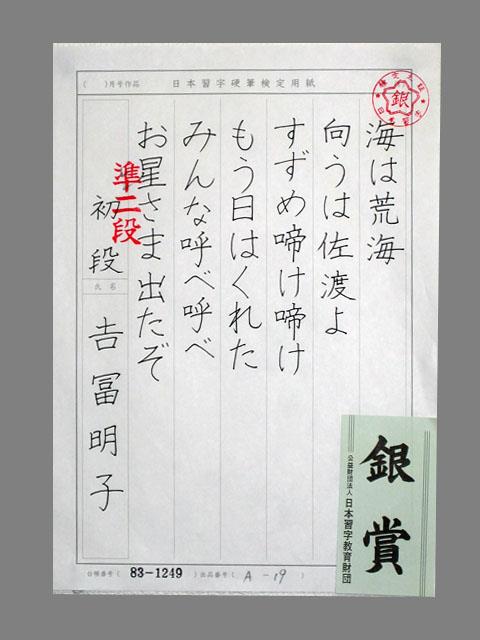 (　)月号作品　日本習字硬筆検定用紙
銀
海は荒海
向うは佐渡よ
すずめ啼け啼け
もう日はくれた
みんな呼べ呼べ
お星さま出たぞ
準二段
初段
氏名
吉冨明子
台帳番号( 83-1249 )出品番号( A-19 )
銀賞
公益財団法人 日本習字教育財団